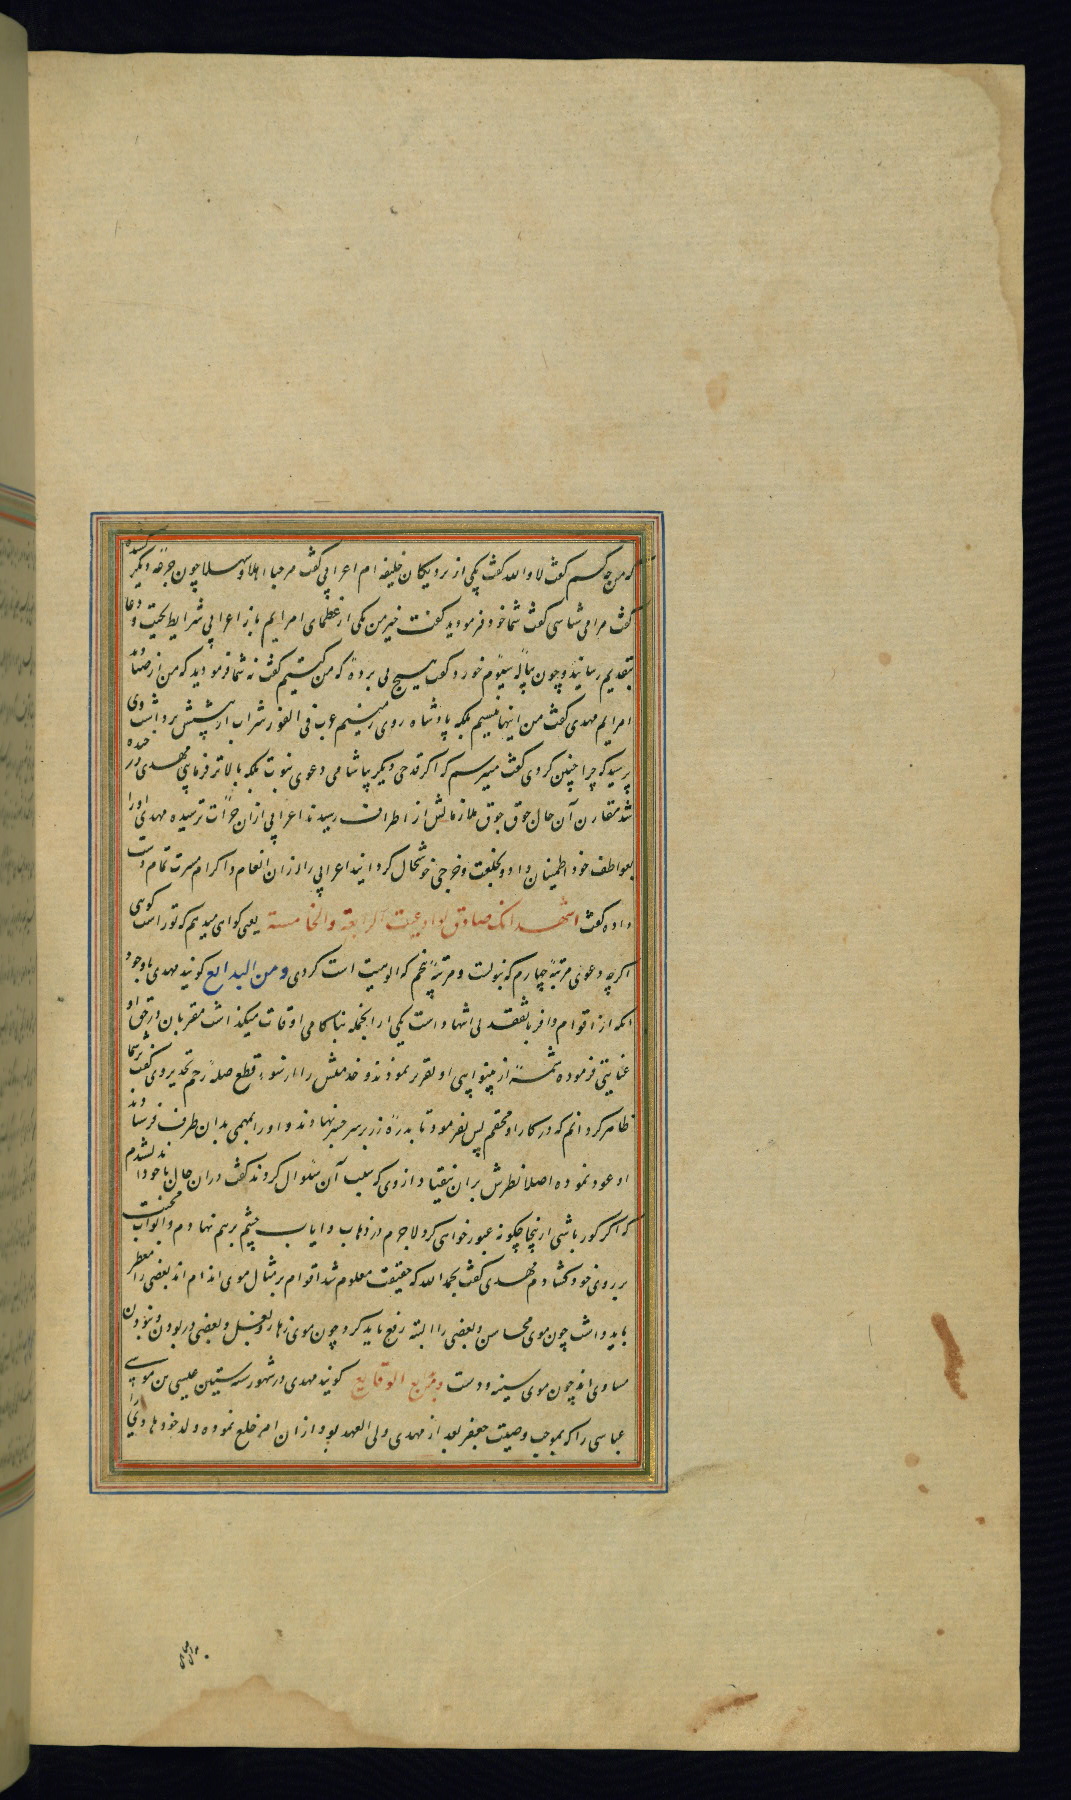 که من چه کسم گفت لا والله گفت یکی از نزدیکان خلیفه ام اعرابی گفت مرحبا اهلا و سهلا چون جرعه دیگر کشیده
گفت مرا می شناسی گفت شما خود فرمودید گفت خیر من یکی از عظمای امرایم باز اعرابی شرایط تحیت و دعا
بتقدیم رسانید و چون پیاله سیوم خورد گفت هیچ پی برده که من کیستم گفت نه شما فرمودید که من از
امرایم مهدی گفت من اینها نیستم بلکه پادشاه روی زمینم عرب فی الفور شراب از پیشش برداشت وی
پرسید که چرا چنین کردی گفت میترسم که اگر قدحی دیگر بیاشامی دعوی نبوت بلکه بالاتر فرمایی مهدی در خنده
شد مقارن آن حال جوق جوق ملازمانش از اطراف رسیدند اعرابی ازان جرأت ترسیده مهدی او را
بعواطف خود اطمینان داد و بخلعت و خرجی خوشحال گردانید اعرابی را ازان انعام و اکرام مسرت تمام دست
داده گفت اشهد انک صادق لو ادعیت الرابعة والخامسة یعنی گواهی میدهم که تو راست گوئی
اگرچه دعوی مرتبه چهارم که نبوتست و مرتبه پنجم که الوهیت است کردی ومن البدایع گویند مهدی باوجود
انکه از اقوام و اقربا تفقد بی انتها داشت یکی از انجمله بناکامی اوقات میگذاشت مقربان در حق او
عنایتی فرموده شمه از بینوایی او تقریر نمودند و خدمتش را از سوء قطع صله رحم تحذیر وی گفت بر شما
ظاهر گردانم که در کار او محقم پس بفرمود تا بدره زر بر سر جسر نهادند و او را بمهمی بدان طرف فرستادند
او عود نموده اصلا نظرش بران نیفتاد از وی که سبب آن سؤال کردند گفت دران حال با خود اندیشیدم
که اگر کور باشی ازینجا چگونه عبور خواهی کرد لاجرم در ذهاب و ایاب چشم برهم نهادم و ابواب محنت
بر روی خود گشادم مهدی گفت بحمد الله که حقیقت معلوم شد اقوام بر مثال موی اندام اند بعضی را معطر
باید داشت چون موی محاسن و بعضی را البته رفع باید کرد چون موی زهار و بغل و بعضی در بودن و نبودن
مساوی اند چون موی سینه و دست ومن الوقایع گویند مهدی در شهور سنه ستین عیسی بن موسی
عباسی را که بموجب وصیت جعفر بعد از مهدی ولی العهد بود ازان امر خلع نموده ولد خود هادی را